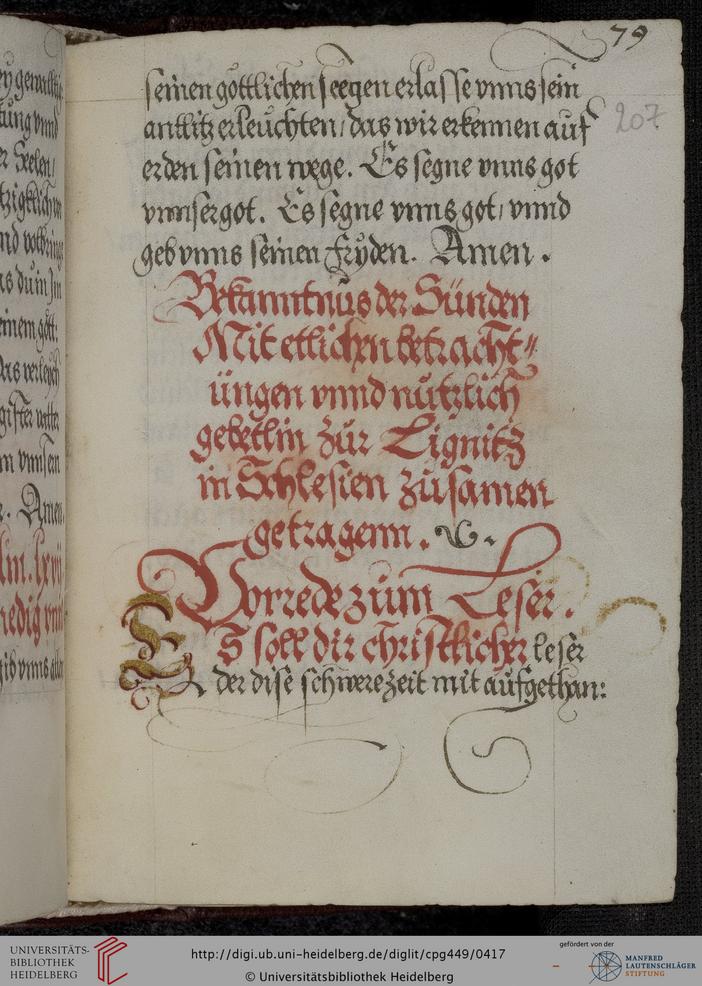 79
207
seinen göttlichen seegen erlasse vnns sein
antlitz erleuchten / das wir erkennen auf
erden seinen wege. Es segne vnns got
vnnser got. Es segne vnns got / vnnd
geb vnns seinen fryden. Amen.
Bekanntnus der Sünden
Mit etlichen betracht⸗
üngen vnnd nützlich
gebetlin zür Lignitz
in Schlesien züsamen
getragenn.
Vorrede züm Leser.
ES soll dir christlicher leser
der dise schwere zeit mit aufgethan:
UNIVERSITÄTS-
BIBLIOTHEK
HEIDELBERG
http://digi.ub.uni-heidelberg.de/diglit/cpg449/0417
© Universitätsbibliothek Heidelberg
gefördert von der
MANFRED
LAUTENSCHLÄGER
STIFTUNG